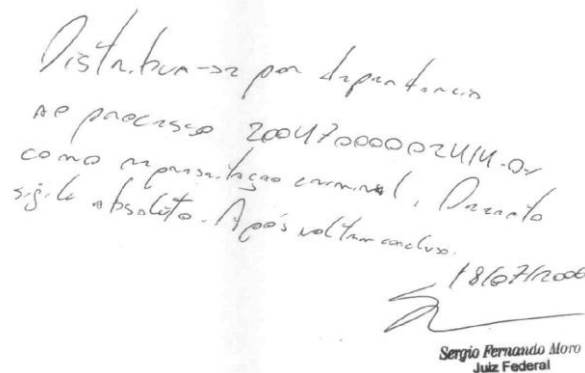 Distribua-se por dependência
ao processo 200470000002414-0
como representação criminal. Decreto
sigilo absoluto. Após voltem conclusos.
18/07/2006
Sergio Fernando Moro
Juiz Federal